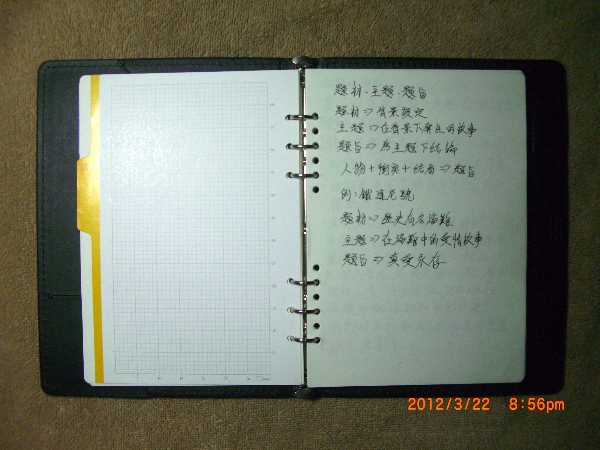 題材、主題、題旨
題材⇒背景設定
主題⇒在背景下產生的故事
題旨⇒為主題下結論
人物+衝突+結局⇒題旨
例:鐵達尼號
題材⇒歷史有名海難
主題⇒在海難中的愛情故事
題旨⇒真愛永存
2012/3/22 8:56pm